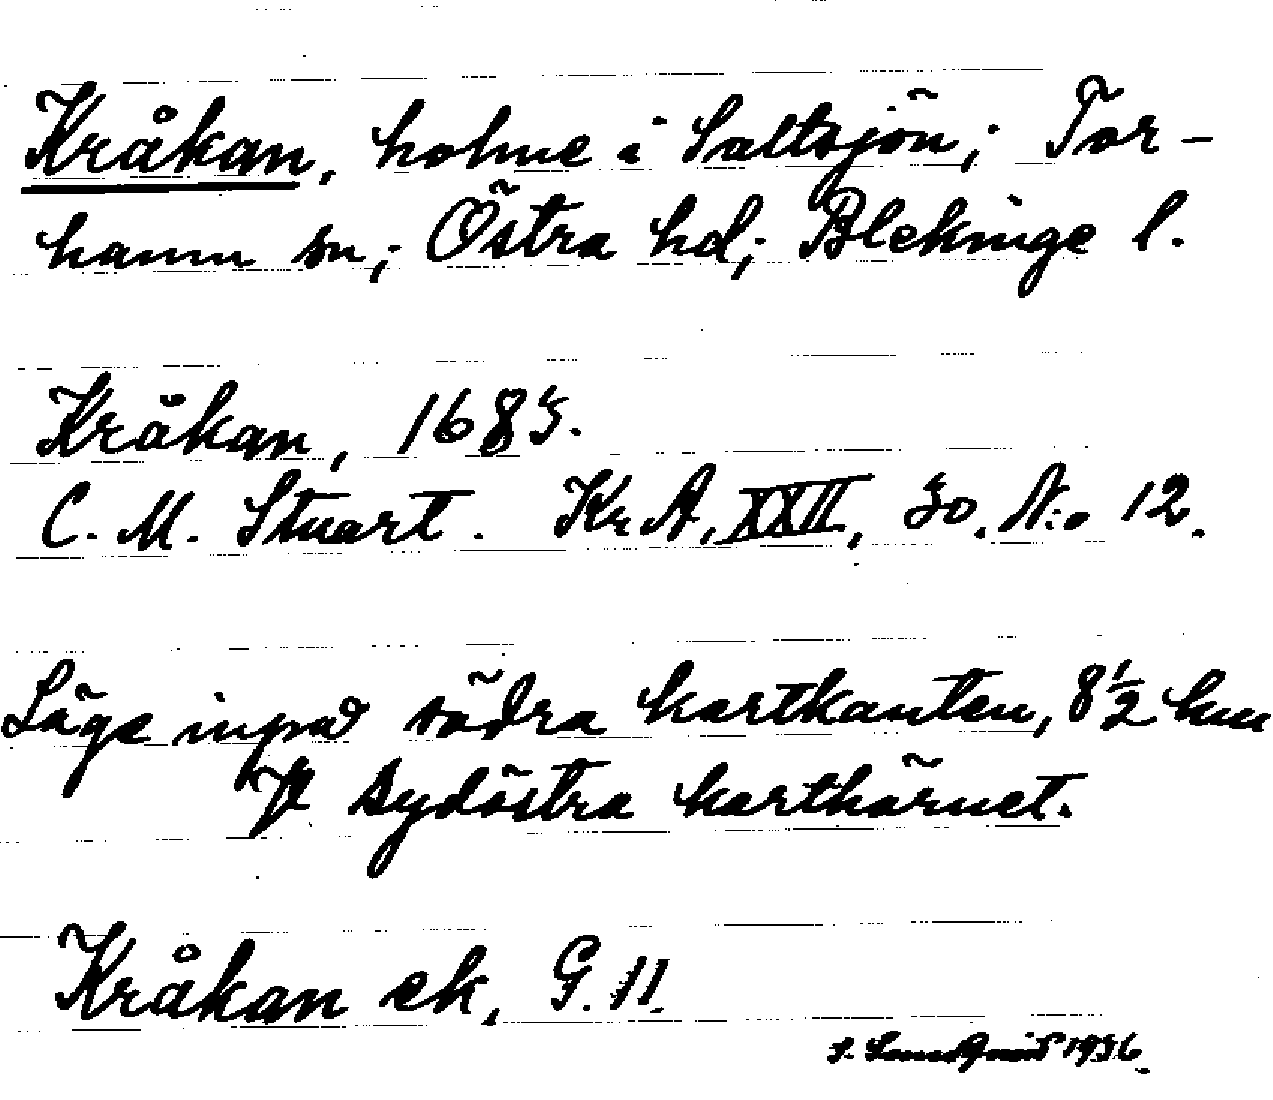 Kråkan, holme i Saltsjön; Tor-
hamn sn; Östra hd; Blekinge l.
Kråkan, 1683.
C. M. Stuart. Kr A, XXII, 30. N:o 12.
Läge inpå södra kartkanten, 8½ km
fr sydöstra karthörnet.
Kråkan ek, G. 11.
1936.